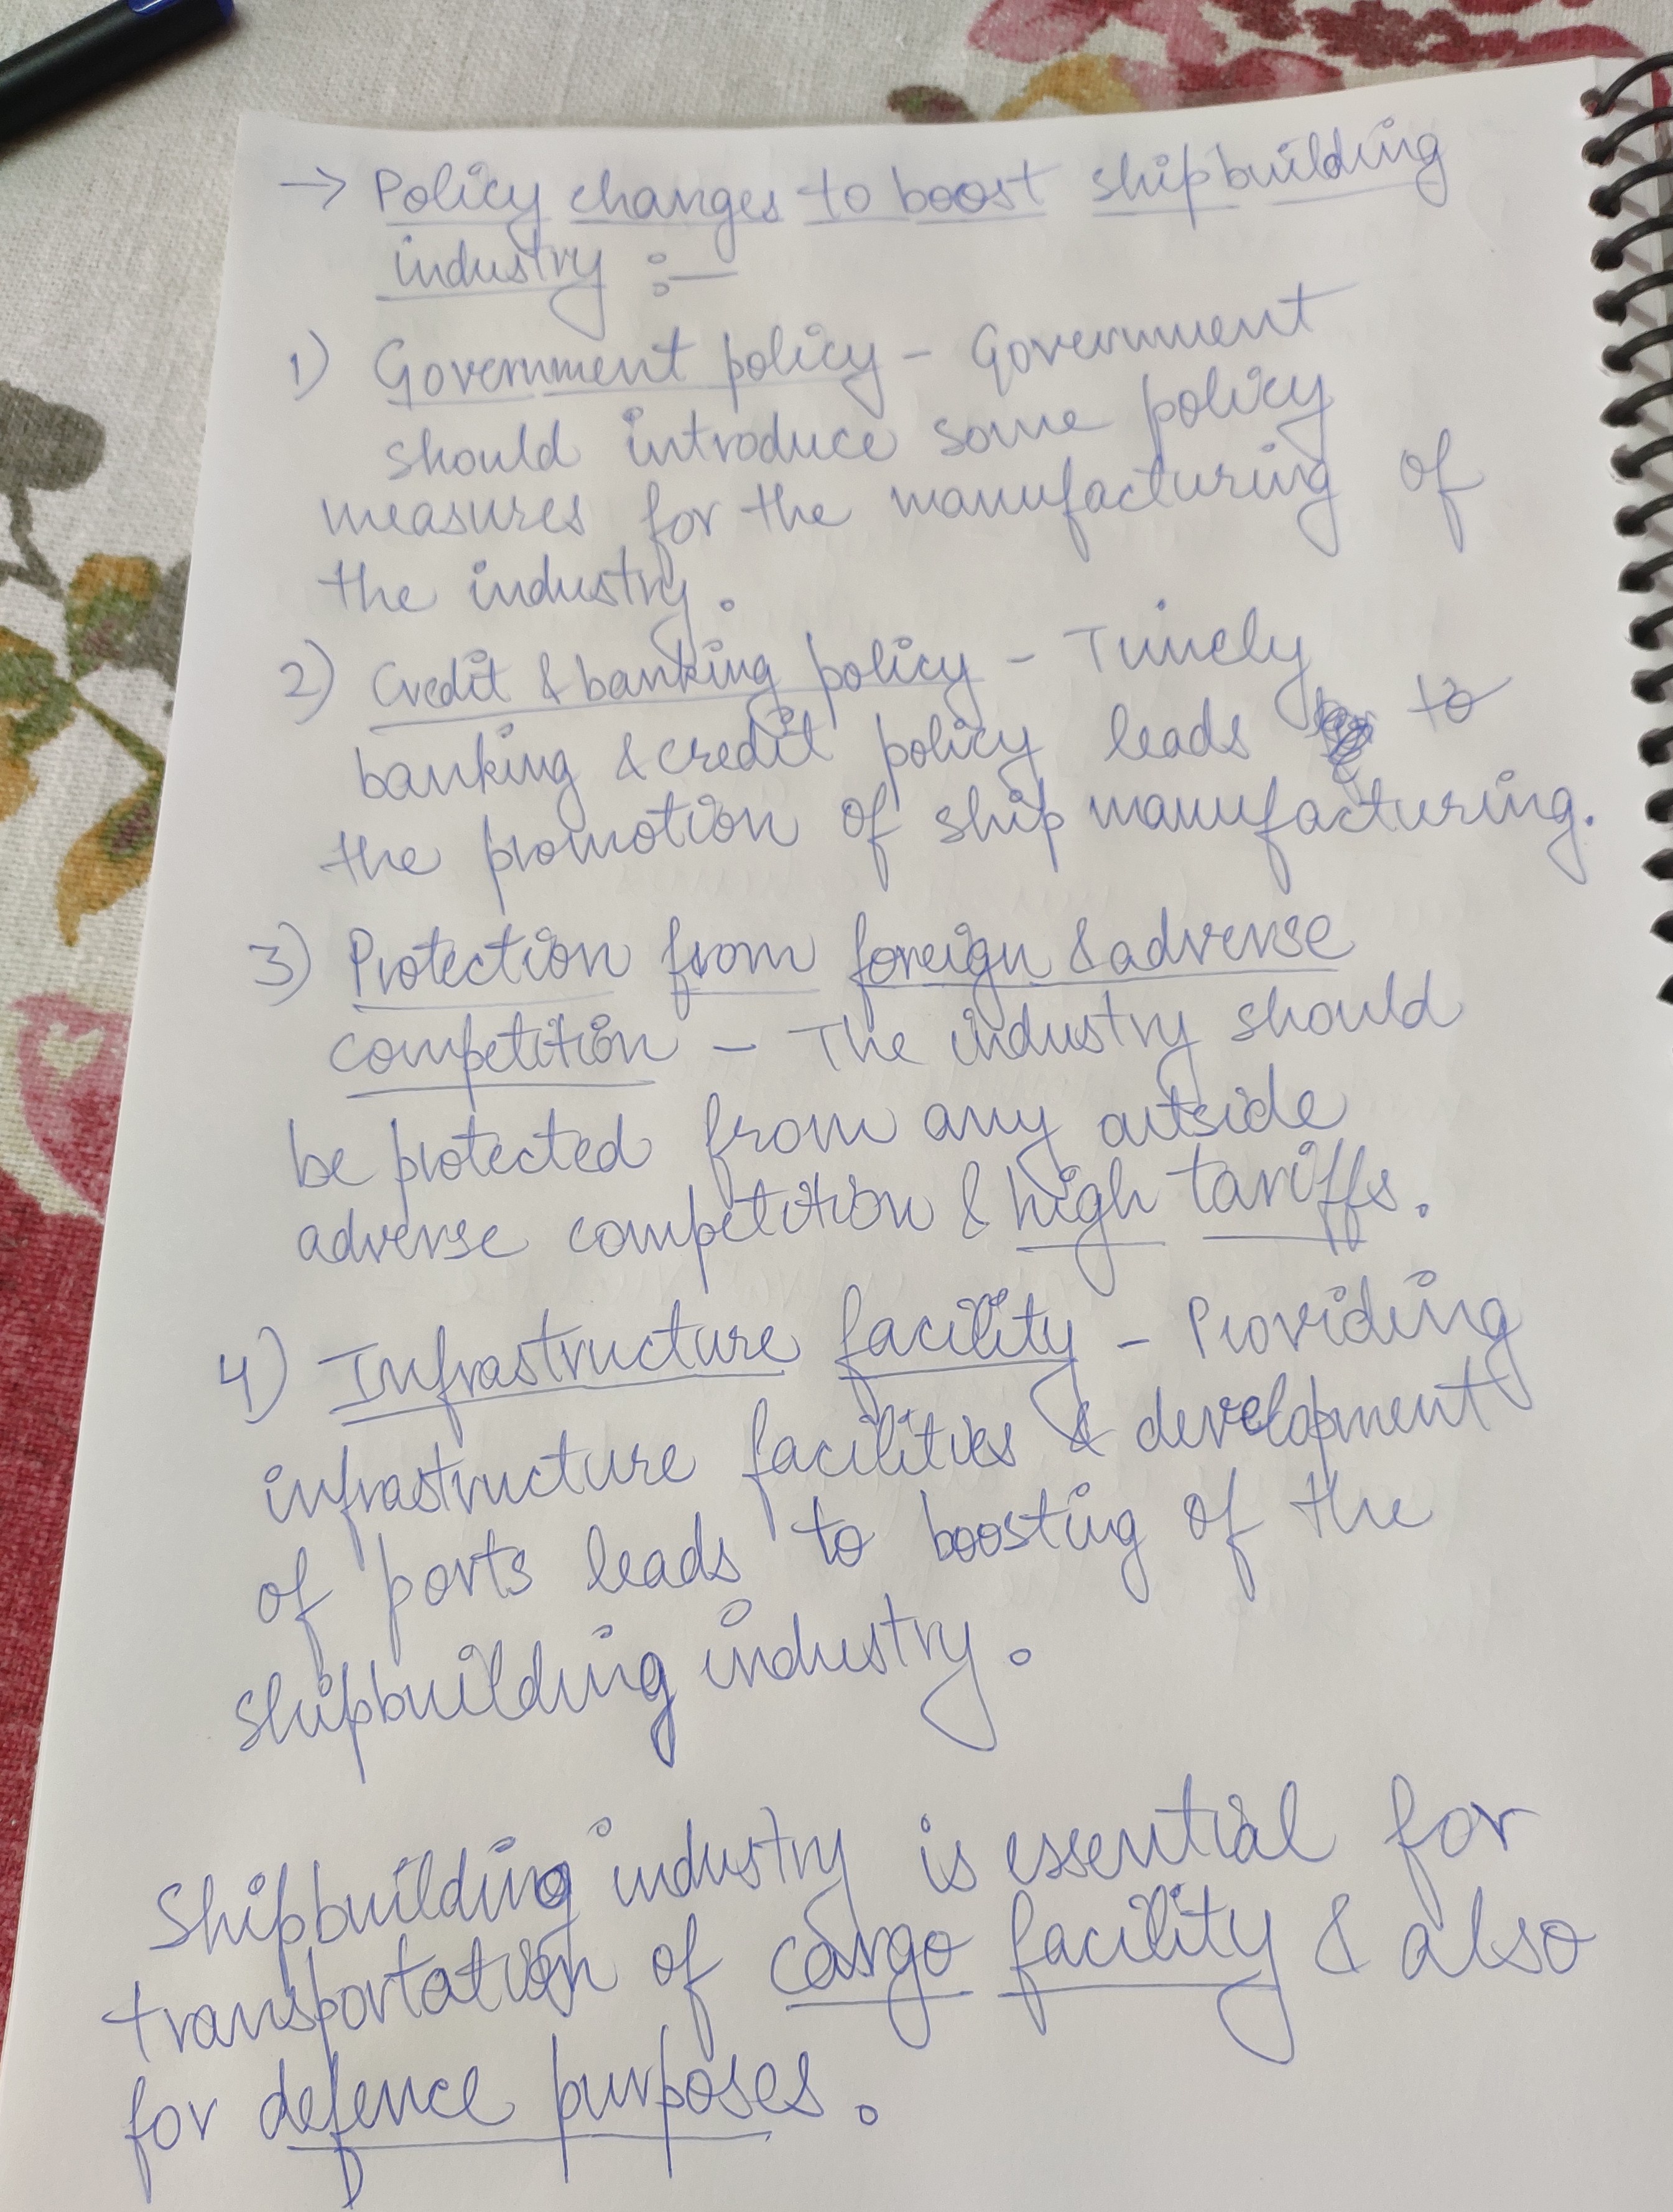 → Policy changes to boost shipbuilding
industry :-
1) Government policy - Government
should introduce some policy
measures for the manufacturing of
the industry.
2) Credit & banking policy - Timely
banking & credit policy leads to
the promotion of ship manufacturing.
3) Protection from foreign & adverse
competition - The industry should
be protected from any outside
adverse competition & high tariffs.
4) Infrastructure facility - Providing
infrastructure facilities & development
of ports leads to boosting of the
shipbuilding industry.
Shipbuilding industry is essential for
transportation of cargo facility & also
for defence purposes.